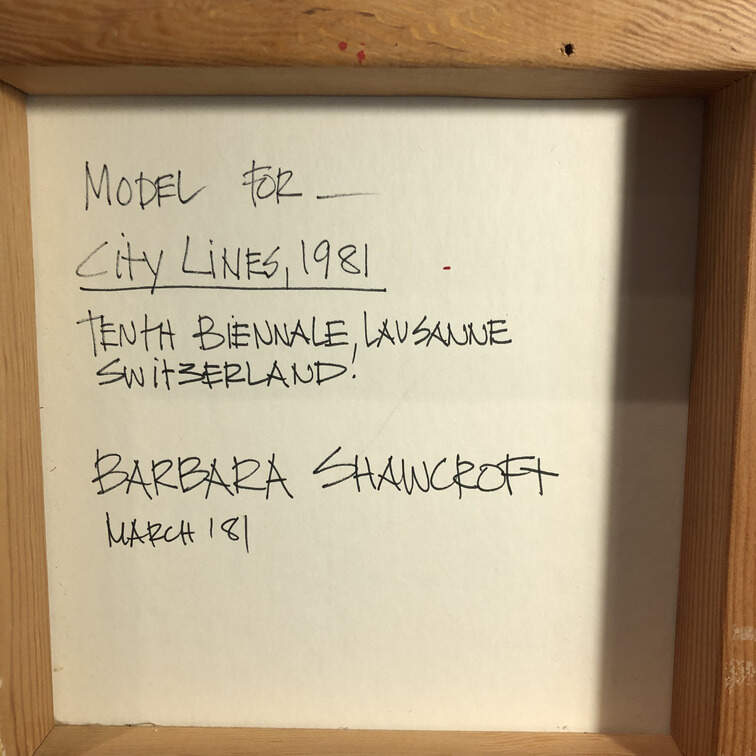 MODEL FOR —
City LiNES, 1981
TENTH BiENNALE, LAUSANNE
SWitZERLAND!
BARBARA SHAWCROFT
MARCH '81